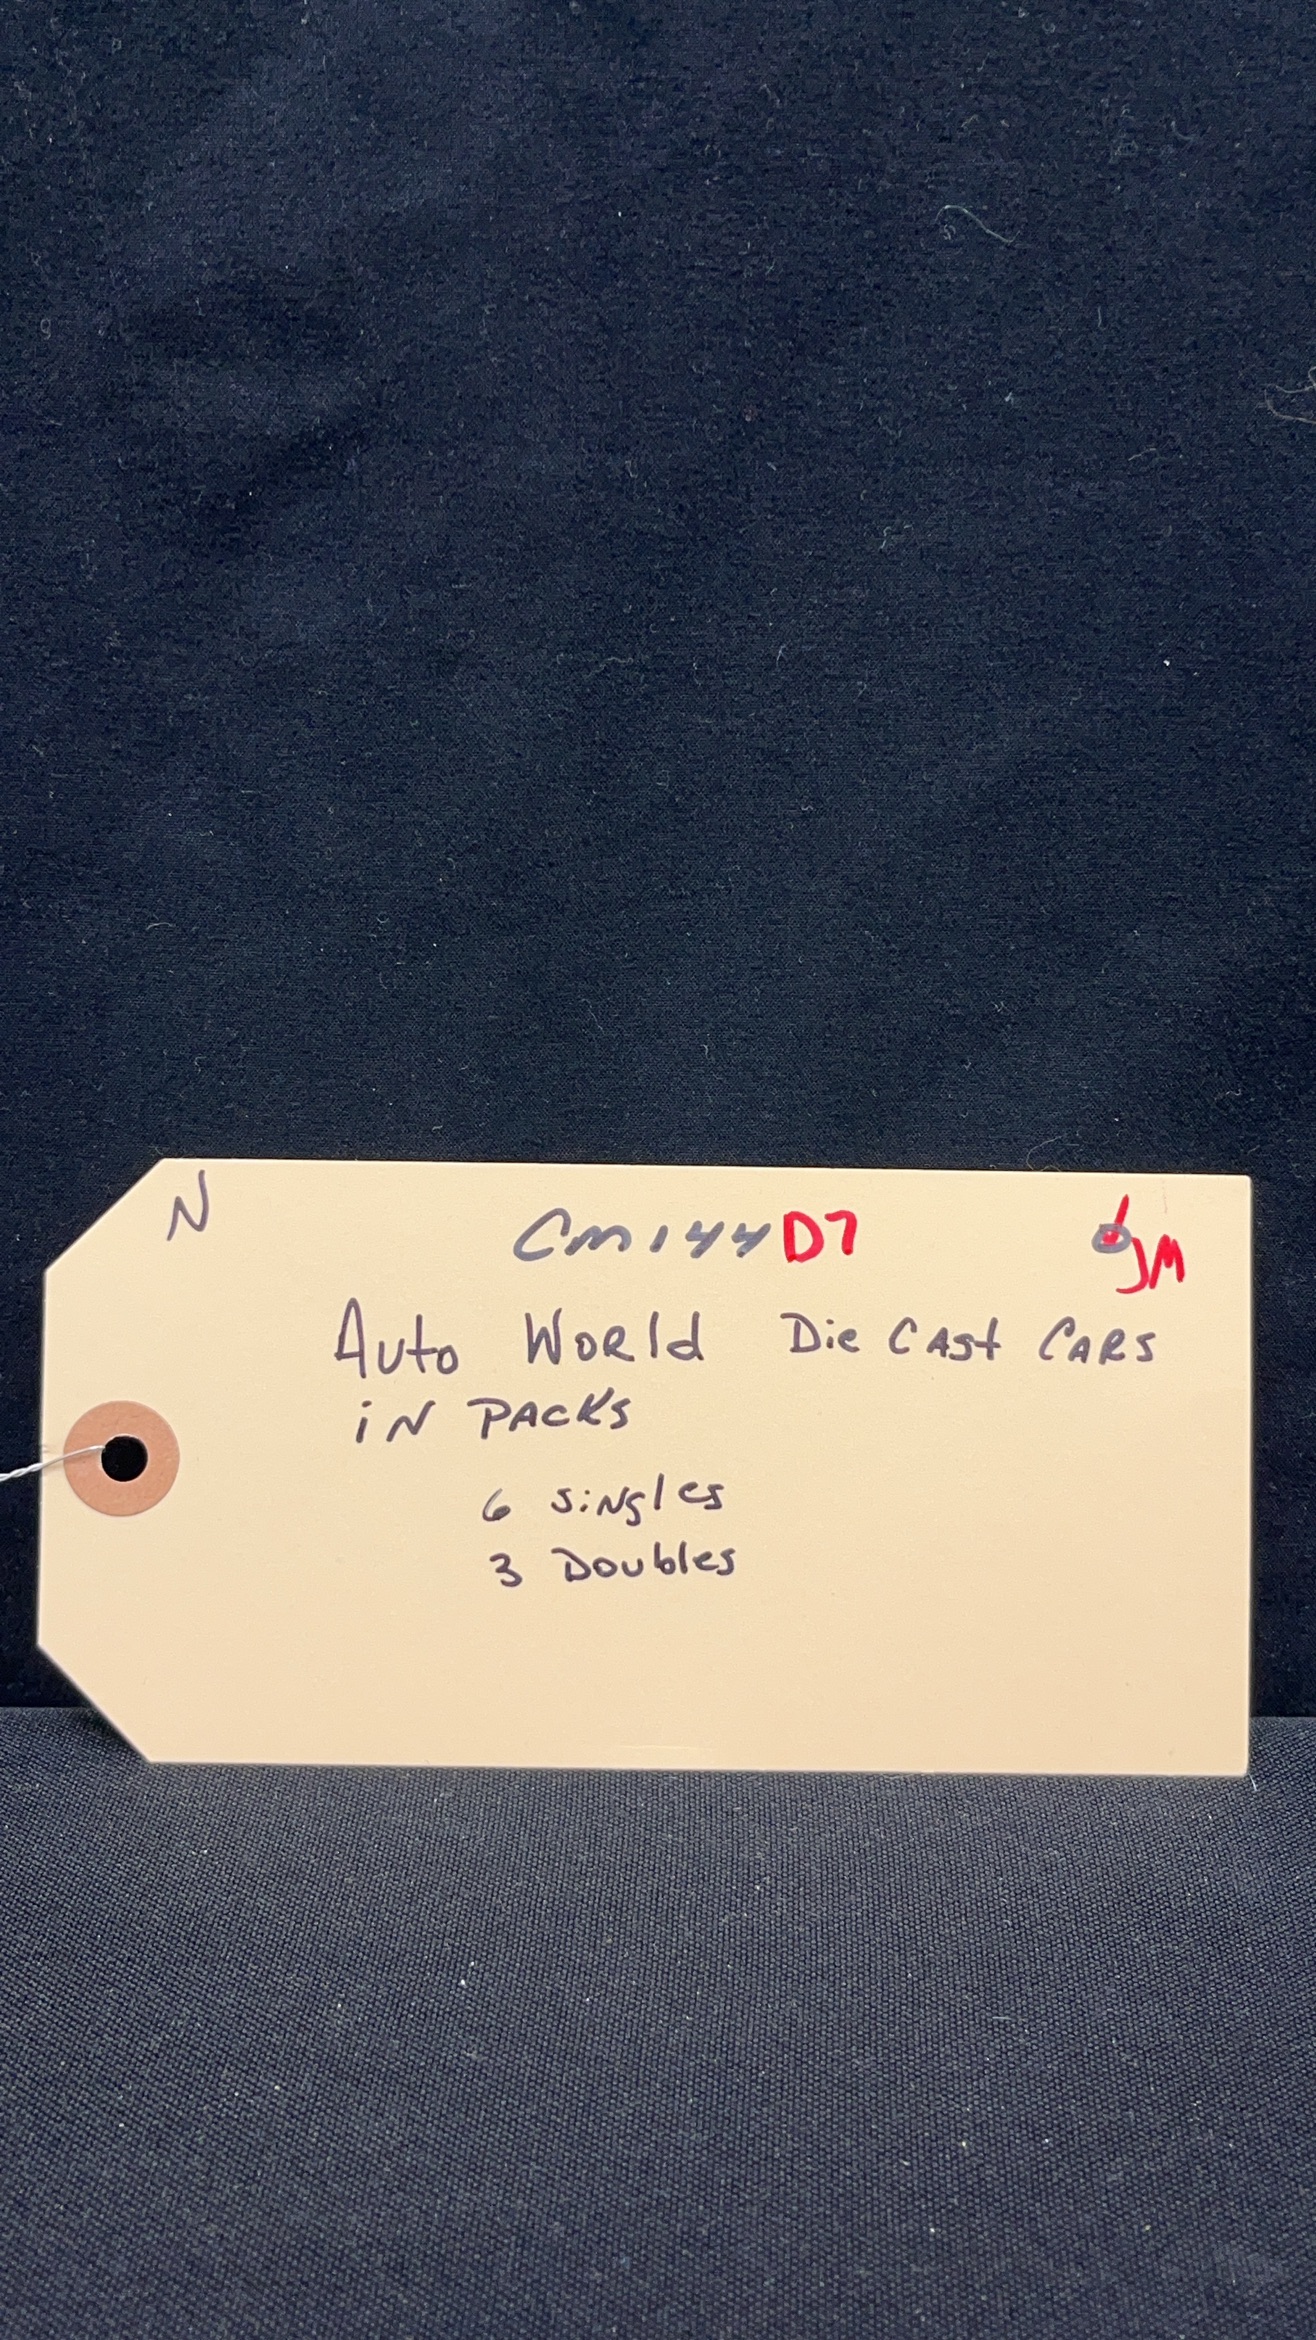 N CM144D7 JM
Auto World Die Cast Cars
in Packs
6 Singles
3 Doubles